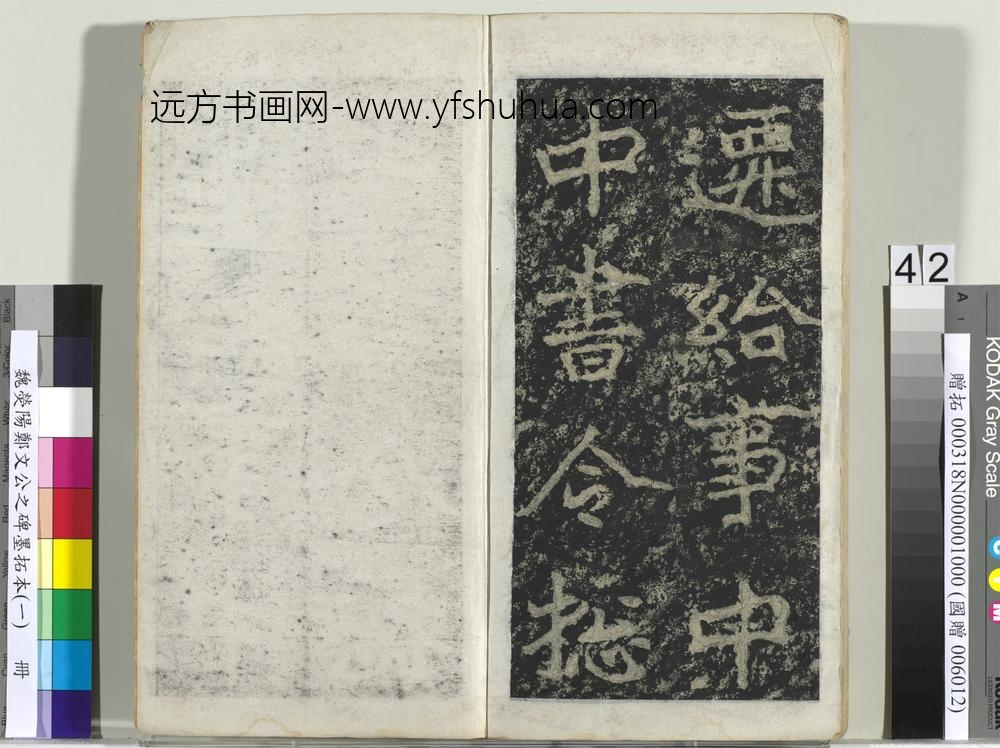 远方书画网-www.yfshuhua.com
遷給事中
中書令揔
42
魏滎陽鄭文公之碑墨拓本(一) 冊
贈拓 000318N000001000 (國贈 006012)
KODAK Gray Scale
A 1
C
Y
M
Black
3/Color
White
Magenta
Red
Yellow
Green
Cyan
Blue